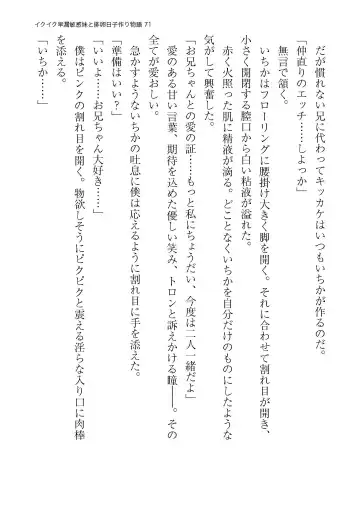 イクイク早漏敏感妹と排卵日子作り物語 71
だが慣れない兄に代わってキッカケはいつもいちかが作るのだ。
「仲直りのエッチ……しよっか」
無言で頷く。
いちかはフローリングに腰掛け大きく脚を開く。それに合わせて割れ目が開き、
小さく開閉する膣口から白い粘液が溢れた。
赤く火照った肌に精液が滴る。どことなくいちかを自分だけのものにしたような
気がして興奮した。
「お兄ちゃんとの愛の証……もっと私にちょうだい、今度は二人一緒だよ」
愛のある甘い言葉、期待を込めた優しい笑み、トロンと訴えかける瞳――。その
全てが愛おしい。
急かすようないちかの吐息に僕は応えるように割れ目に手を添えた。
「準備はいい？」
「いいよ……お兄ちゃん大好き……」
僕はピンクの割れ目を開く。物欲しそうにピクピクと震える淫らな入り口に肉棒
を添える。
「いちか……」